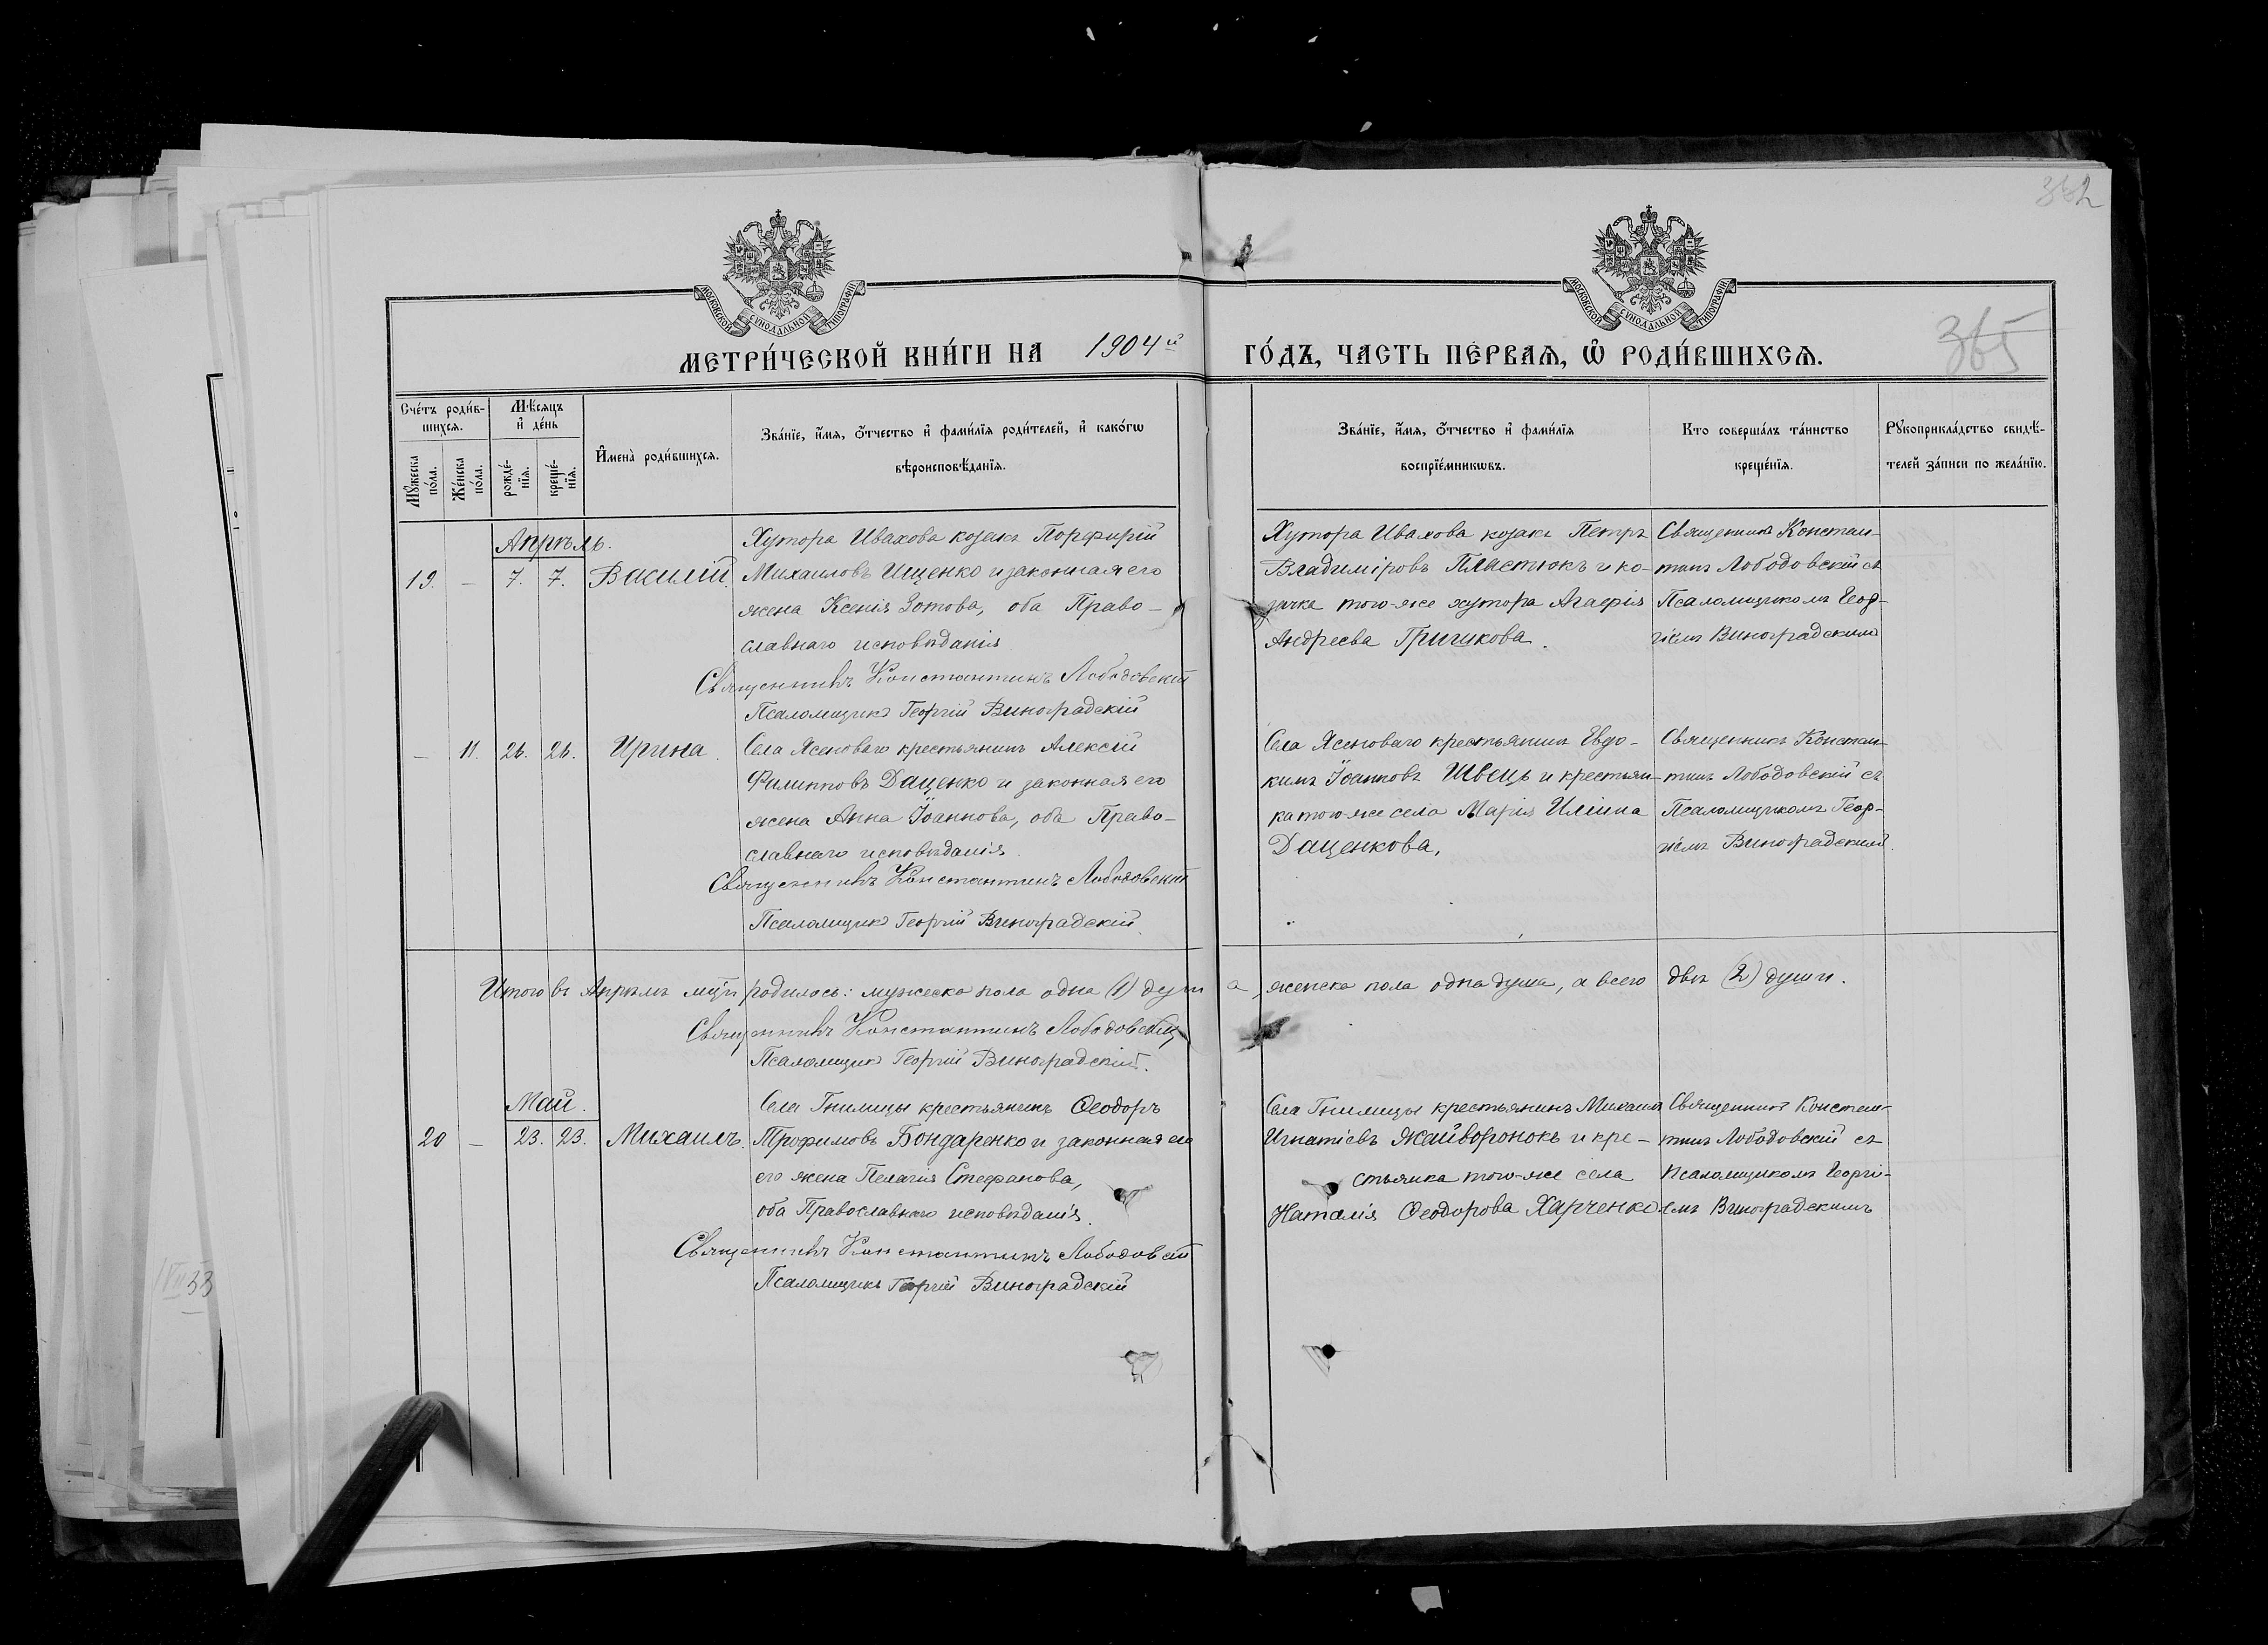 362
365
МОСКОВСКОЙ СУНОДАЛЬНОЙ ТИПОГРАФІИ
МОСКОВСКОЙ СУНОДАЛЬНОЙ ТИПОГРАФІИ
МЕТРИ́ЧЕСКОЙ КНИ́ГИ НА 1904й ГО́ДЪ, ЧАСТЬ ПЕ́РВАѦ, Ѿ РОДИ́ВШИХСѦ.
Сче́тъ роди́в-
шихсѧ.
Мꙋ́жеска
по́ла.
Же́нска
по́ла.
Мѣ́сѧцъ
и҆ де́нь
рожде́-
нїѧ.
креще́-
нїѧ.
И҆мена̀ роди́вшихсѧ.
Зва́нїе, и҆́мѧ, ѻ҆́тчество и҆ фами́лїѧ роди́телей, и҆ како́гѡ
вѣроисповѣ́данїѧ.
Зва́нїе, и҆́мѧ, ѻ҆́тчество и҆ фами́лїѧ
воспрїе́мникѡвъ.
Кто соверша́лъ та́инство
креще́нїѧ.
Рꙋкоприкла́дство свидѣ́-
телей за́писи по жела́нїю.
Апрѣль.
19. — 7. 7. Василій.
Хутора Ивахова козакъ Порфирій
Михаиловъ Ищенко и законная его
жена Ксенія Зотова, оба Право-
славнаго исповѣданія
Священникъ Константинъ Лободовскій
Псаломщикъ Георгій Виноградскій
Хутора Ивахова козакъ Петръ
Владиміровъ Пластюкъ и ко-
зачка того-же хутора Агафія
Андреева Гришкова.
Священникъ Констан-
тинъ Лободовскій съ
Псаломщикомъ Геор-
гіемъ Виноградскимъ
— 11. 26. 26. Ирина.
Села Ясеноваго крестьянинъ Алексій
Филипповъ Даценко и законная его
жена Анна Іоаннова, оба Право-
славнаго исповѣданія
Священникъ Константинъ Лободовскій
Псаломщикъ Георгій Виноградскій.
Села Ясеноваго крестьянинъ Евдо-
кимъ Іоанновъ Швець и крестьян-
ка того-же села Марія Иліина
Даценкова,
Священникъ Констан-
тинъ Лободовскій съ
Псаломщикомъ Геор-
гіемъ Виноградскимъ.
Итого въ Апрѣлѣ родилось: мужеска пола одна (1) душа, женска пола одна душа, а всего двѣ (2) души.
Священникъ Константинъ Лободовскій
Псаломщикъ Георгій Виноградскій.
Май.
20 — 23. 23. Михаилъ.
Села Гнилицы крестьянинъ Ѳеодоръ
Трофимовъ Бондаренко и законная его
его жена Пелагія Стефанова,
оба Православнаго исповѣданія.
Священникъ Константинъ Лободовскій
Псаломщикъ Георгій Виноградскій
Села Гнилицы крестьянинъ Михаилъ
Игнатіевъ Жайворонокъ и кре-
стьянка того-же села
Наталія Ѳеодорова Харченко
Священникъ Констан-
тинъ Лободовскій съ
Псаломщикомъ Георгі-
емъ Виноградскимъ